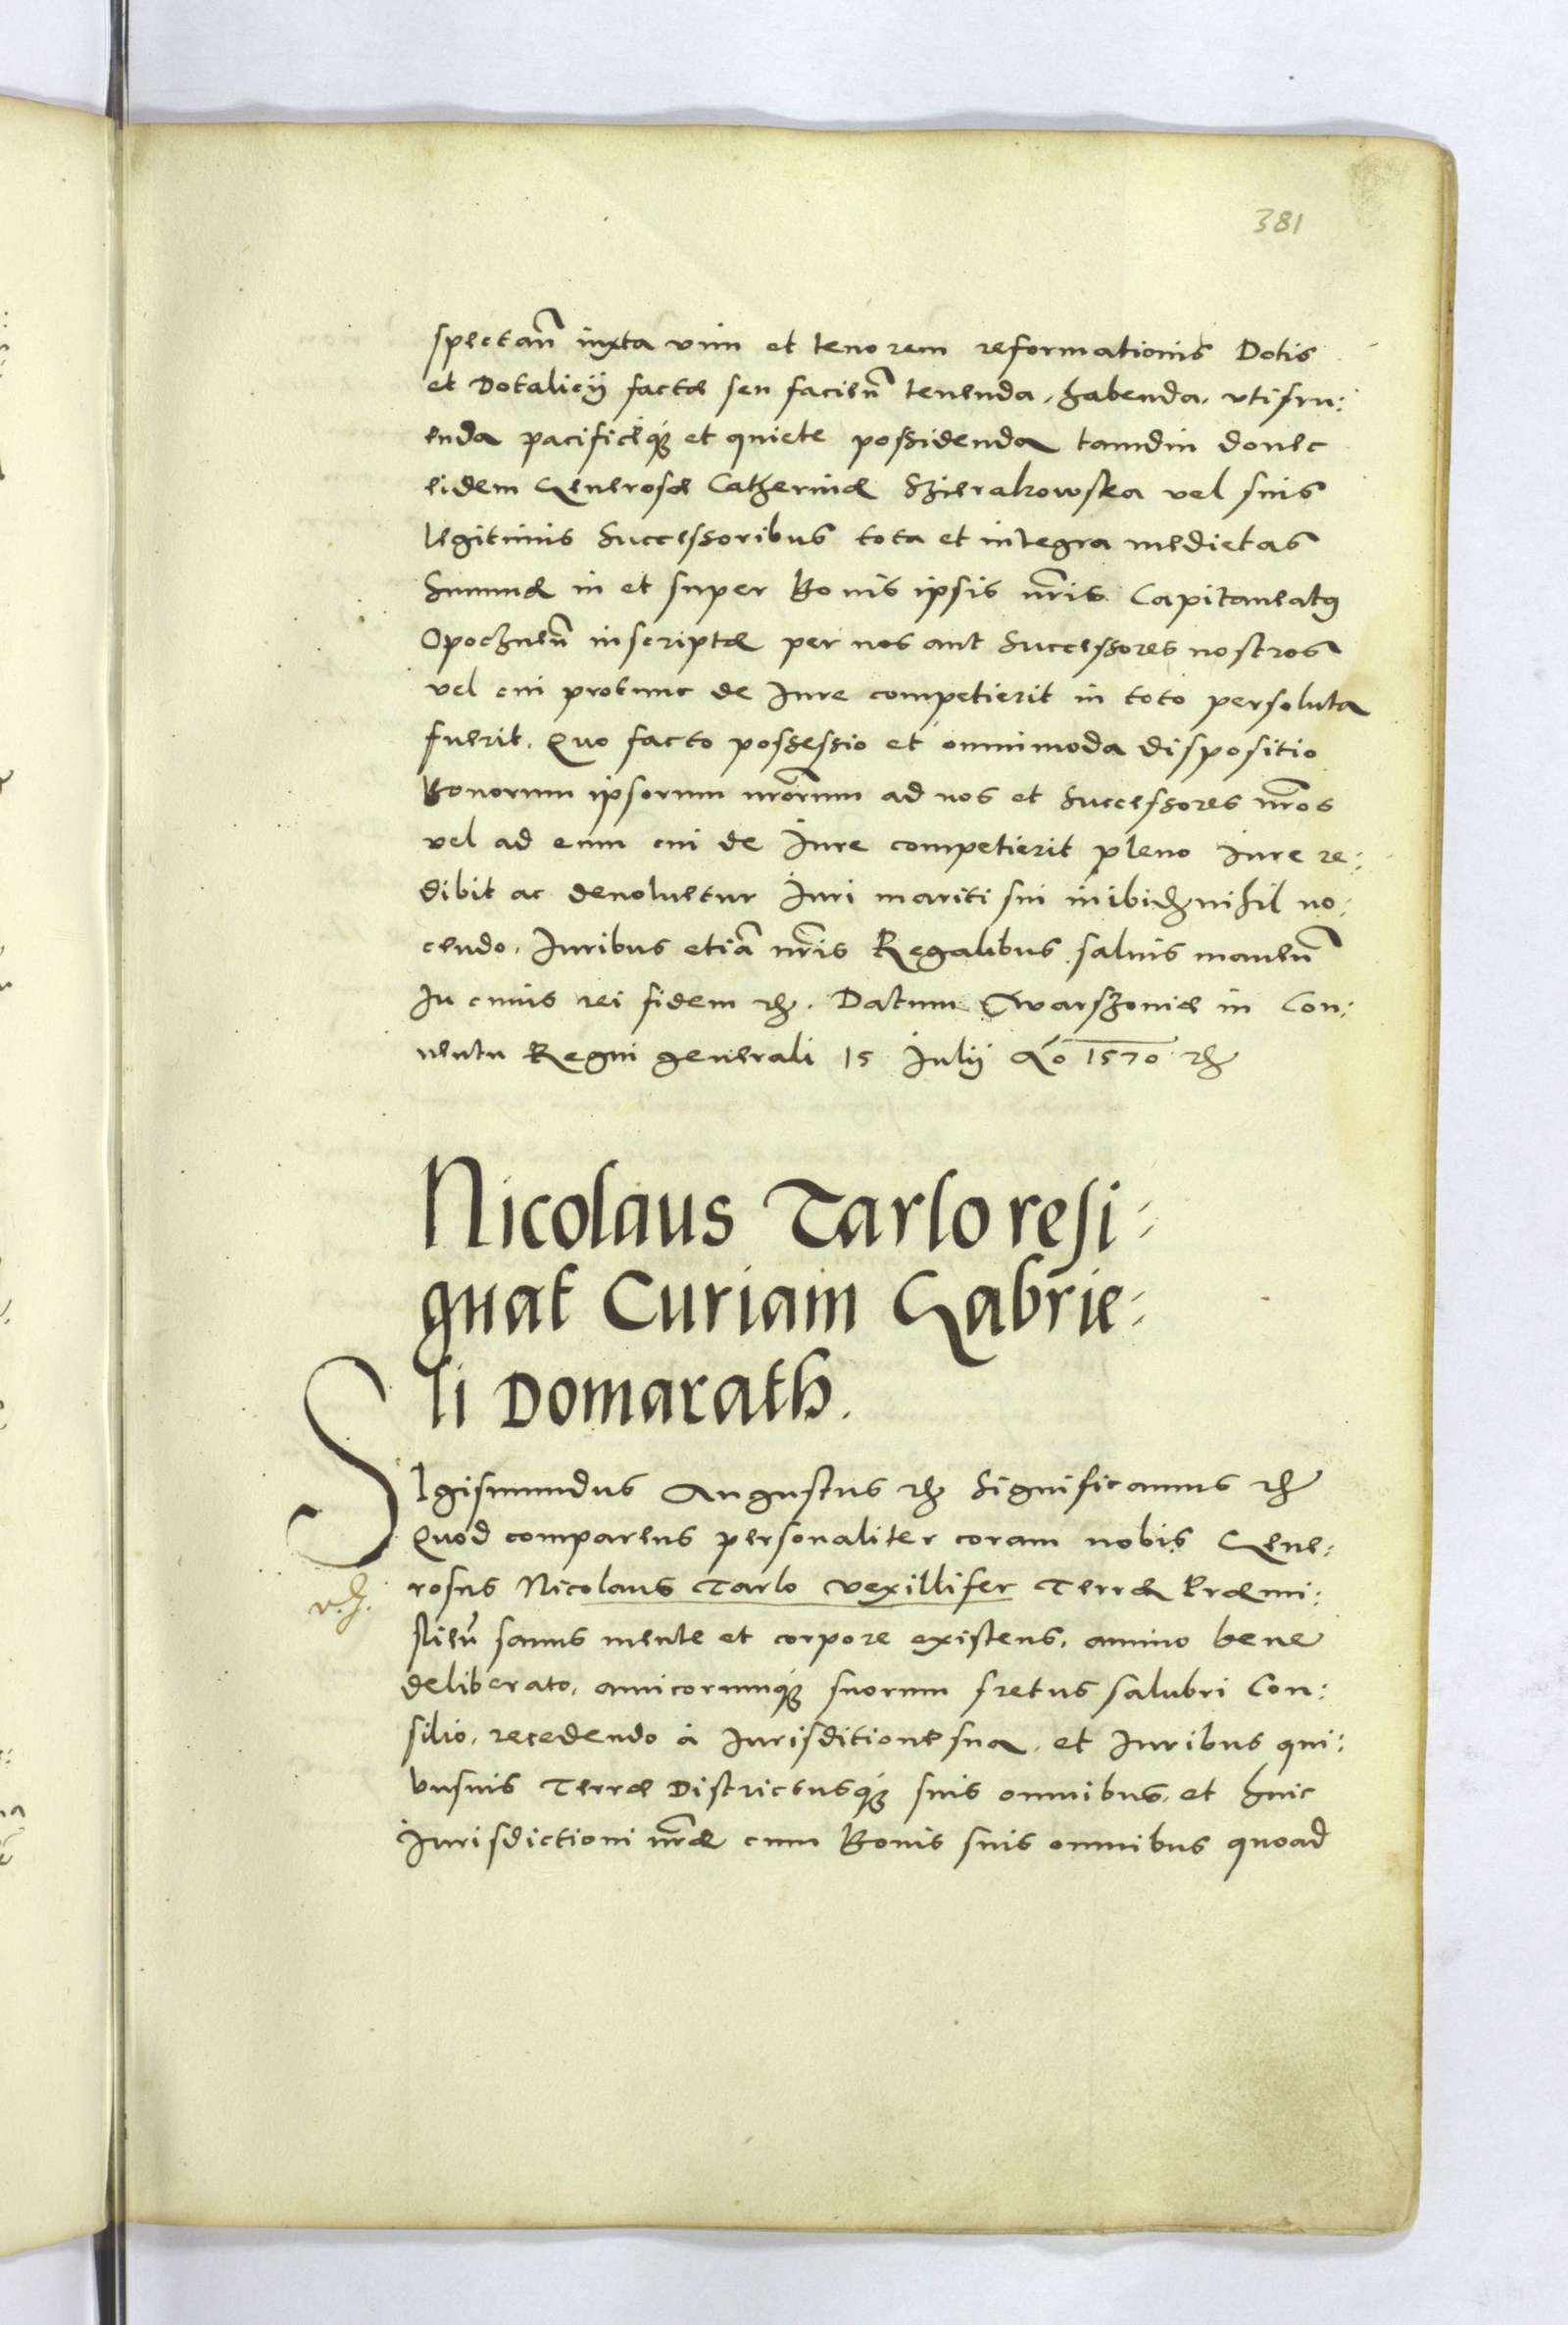 381
spectan̄ iuxta vim et tenorem reformationis Dotis
et Dotalicij factæ seu facien̄ tenenda, habenda, vtifru:
enda pacificèq₃ et quiete possidenda tamdiu donec
eidem Generosæ Catherinæ Szierakowska vel suis
legitimis Successoribus tota et integra medietas
Summæ in et super Bonis ipsis nr̄is Capitaneatus
Opocznen̄ inscriptæ per nos aut Successores nostros
vel cui protunc de Iure competierit in toto persoluta
fuerit. Quo facto possessio et omnimoda dispositio
Bonorum ipsorum nr̄orum ad nos et Successores nr̄os
vel ad eum cui de Iure competierit pleno Iure re:
dibit ac deuoluetur Iuri mariti sui inibidem nihil no:
cendo. Iuribus etiā nr̄is Regalibus saluis manen̄
In cuius rei fidem etc. Datum Warszouiæ in Con:
uentu Regni generali 15 Iulij Aō 1570 etc
Nicolaus Tarlo resi:
gnat Curiam Gabrie:
li Domarath.
SIgismundus Augustus etc Significamus etc
Quod comparens personaliter coram nobis Gene:
rosus Nicolaus Tarlo vexillifer Terræ Præmi:
slien̄ sanus mente et corpore existens, animo bene
deliberato, amicorumq₃ suorum fretus salubri Con:
silio, recedendo à Iurisditione sua, et Iuribus qui:
busuis Terræ Districtusq₃ suis omnibus, et huic
Iurisdictioni nr̄æ cum Bonis suis omnibus quoad